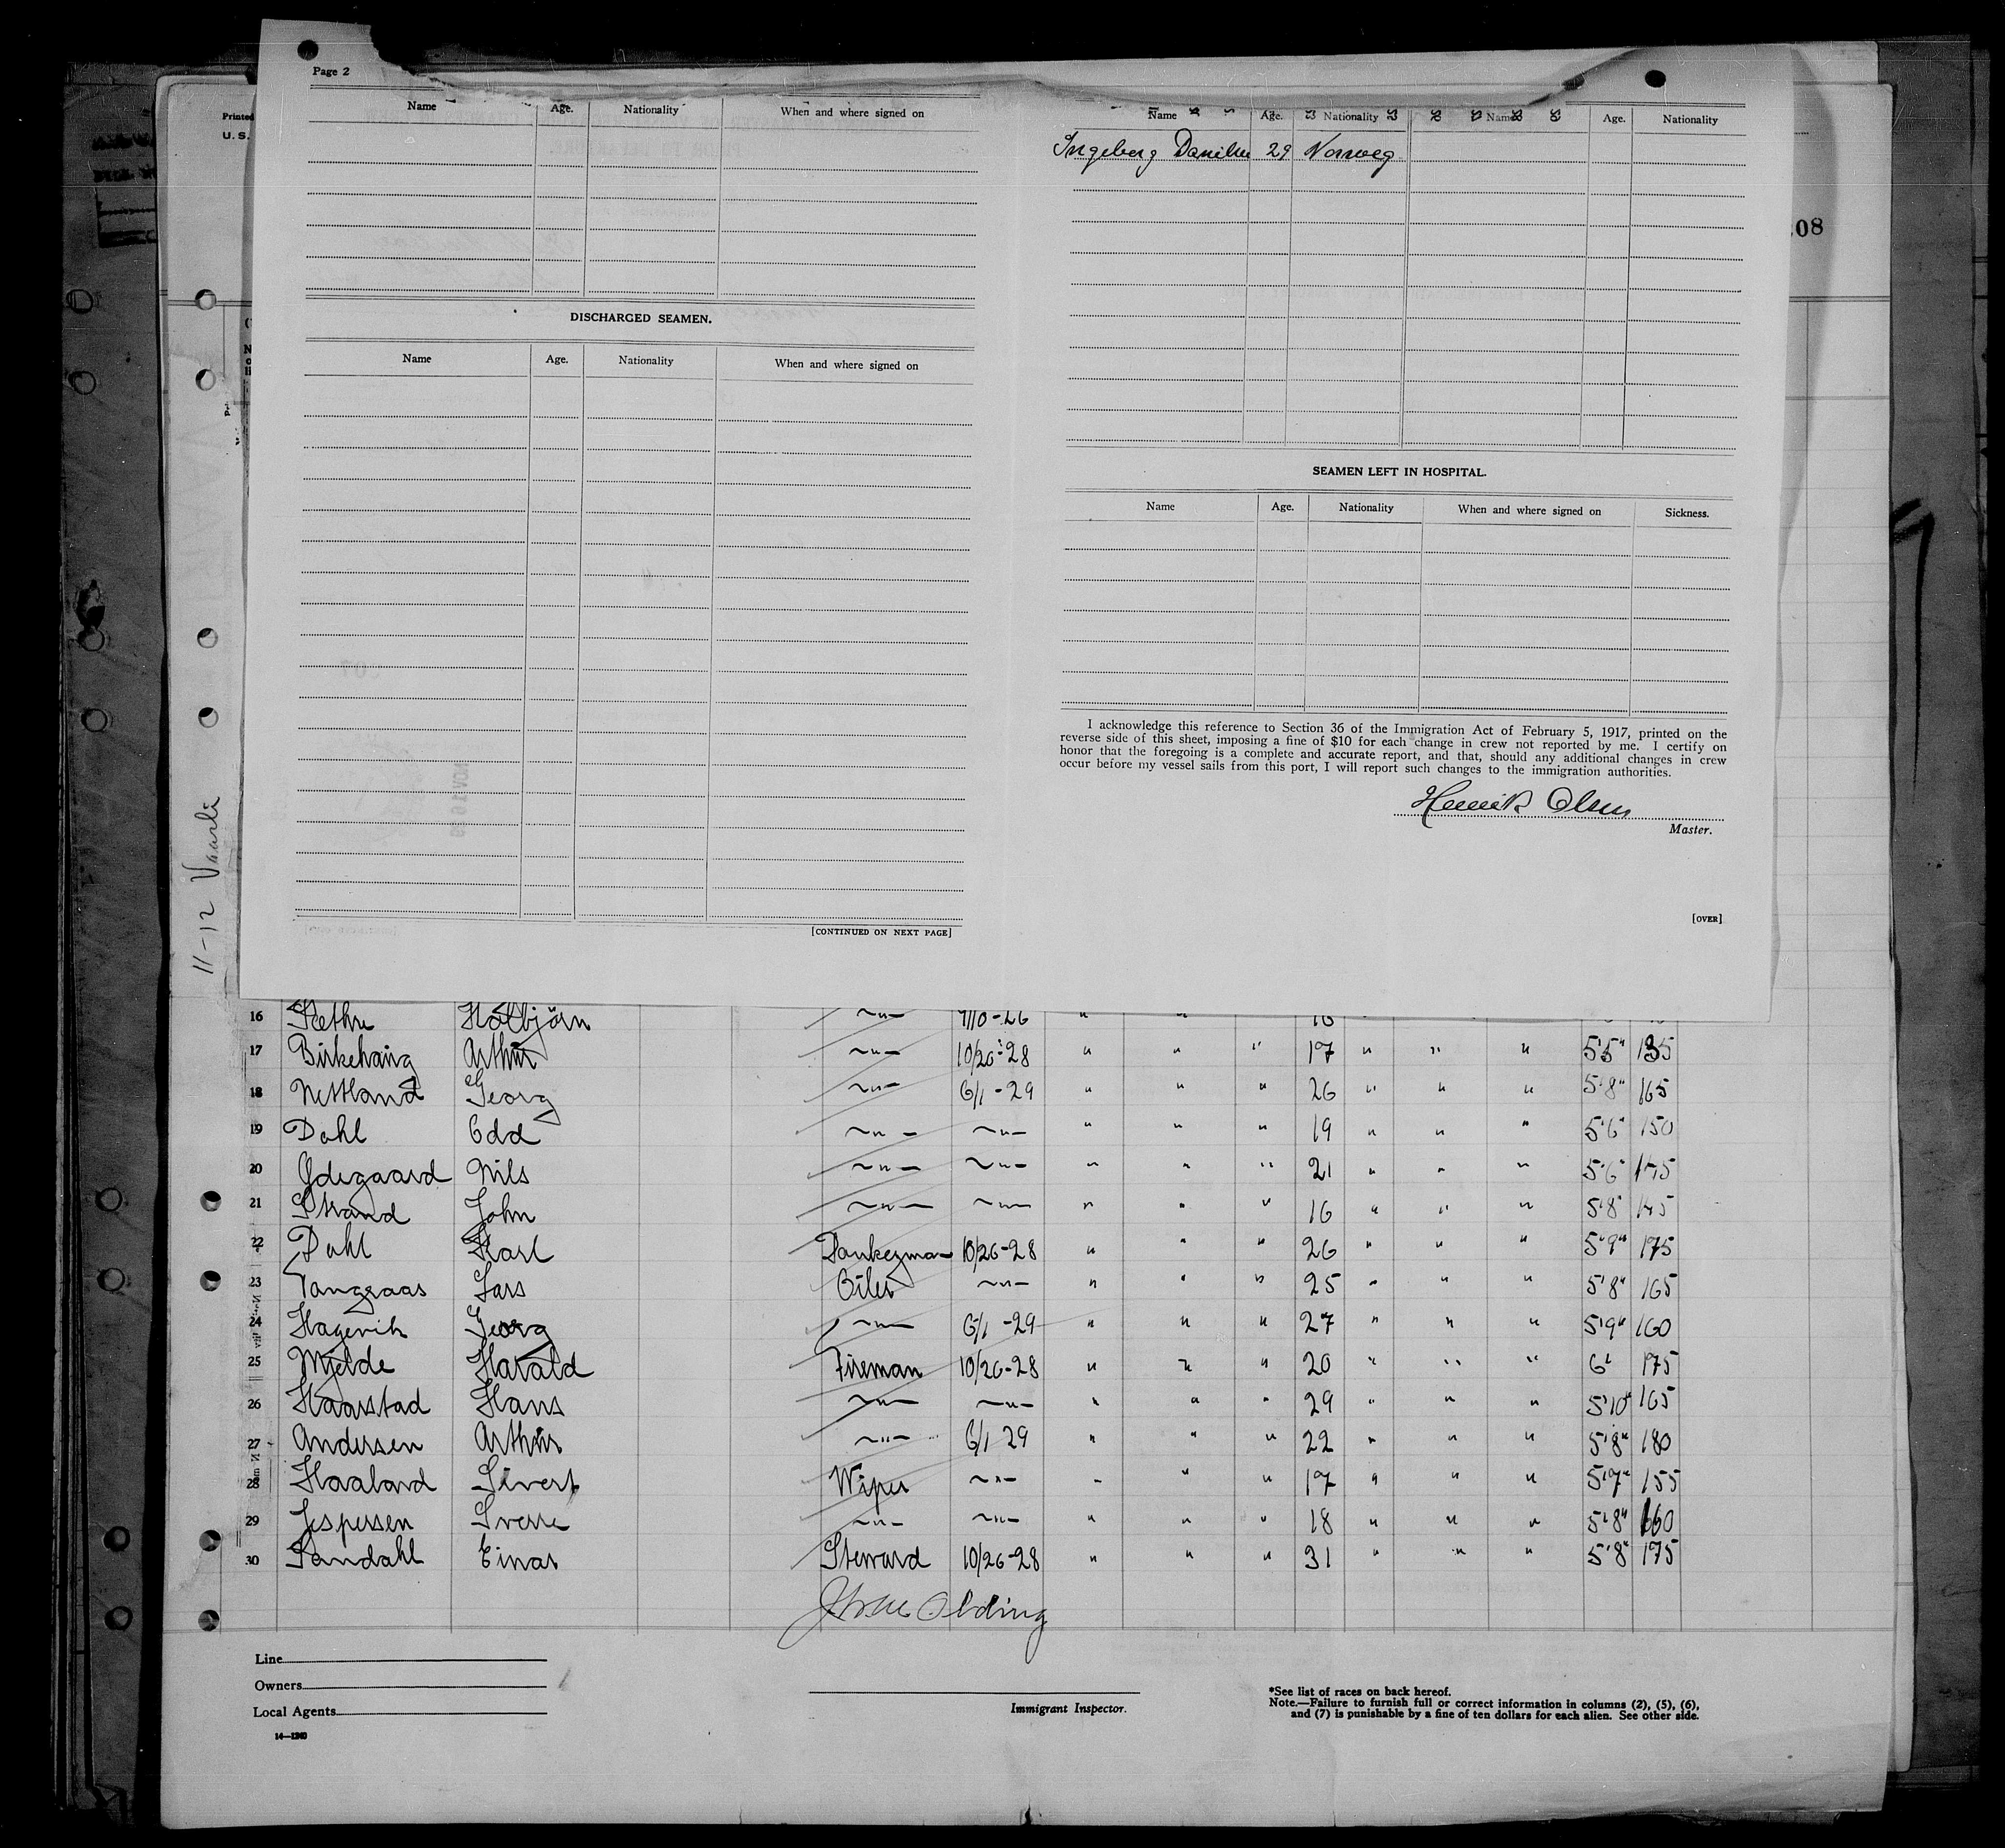 Page 2
Name Age. Nationality When and where signed on
DISCHARGED SEAMEN.
Name Age. Nationality When and where signed on
[CONTINUED ON NEXT PAGE]
Name Age. Nationality Name Age. Nationality
Ingeberg 29 Norweg
SEAMEN LEFT IN HOSPITAL.
Name Age. Nationality When and where signed on Sickness.
I acknowledge this reference to Section 36 of the Immigration Act of February 5, 1917, printed on the
reverse side of this sheet, imposing a fine of $10 for each change in crew not reported by me. I certify on
honor that the foregoing is a complete and accurate report, and that, should any additional changes in crew
occur before my vessel sails from this port, I will report such changes to the immigration authorities.
Henrik Olsen
Master.
[OVER]
Printed
U. S.
08
11-12 Vaarli
16
17 Birkehaug Arthur ~"- 10/26-28 " " " 17 " " " 5'5" 135
18 Nettland Georg ~"- 6/1-29 " " " 26 " " " 5'8" 165
19 Dahl Odd ~"- ~"- " " " 19 " " " 5'6" 150
20 Ødegaard Nils ~"- ~"- " " " 21 " " " 5'6"
21 Strand John ~"- ~"- " " " 16 " " " 5'8" 145
22 Dahl Karl Donkeyman 10/26-28 " " " 26 " " " 5'9" 175
23 Tanggaas Lars Oiler ~"- " " " 25 " " " 5'8" 165
24 Hagevik Georg ~"- 6/1-29 " " " 27 " " " 5'9" 160
25 Mjelde Harald Fireman 10/26-28 " " " 20 " " " 6' 175
26 Haarstad Hans ~"- ~"- " " " 29 " " " 5'10" 165
27 Andersen Arthur ~"- 6/1 29 " " " 22 " " " 5'8" 180
28 Haaland Sivert Wiper ~"- " " " 17 " " " 5'7" 155
29 Jespersen Sverre ~"- ~"- " " " 18 " " " 5'8" 160
30 Sandahl Einar Steward 10/26-28 " " " 31 " " " 5'8" 175
Line
Owners
Local Agents
14—1240
Immigrant Inspector.
*See list of races on back hereof.
Note.—Failure to furnish full or correct information in columns (2), (5), (6),
and (7) is punishable by a fine of ten dollars for each alien. See other side.